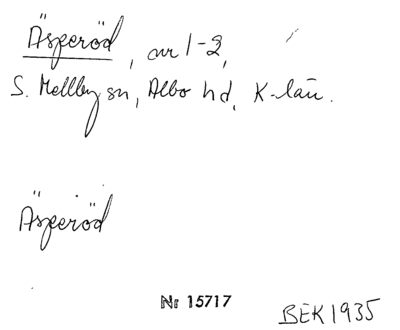 Äsperöd, nr 1-2,
S. Mellby sn, Albo hd, K-län.
Äsperöd
Nr 15717
BEK 1935